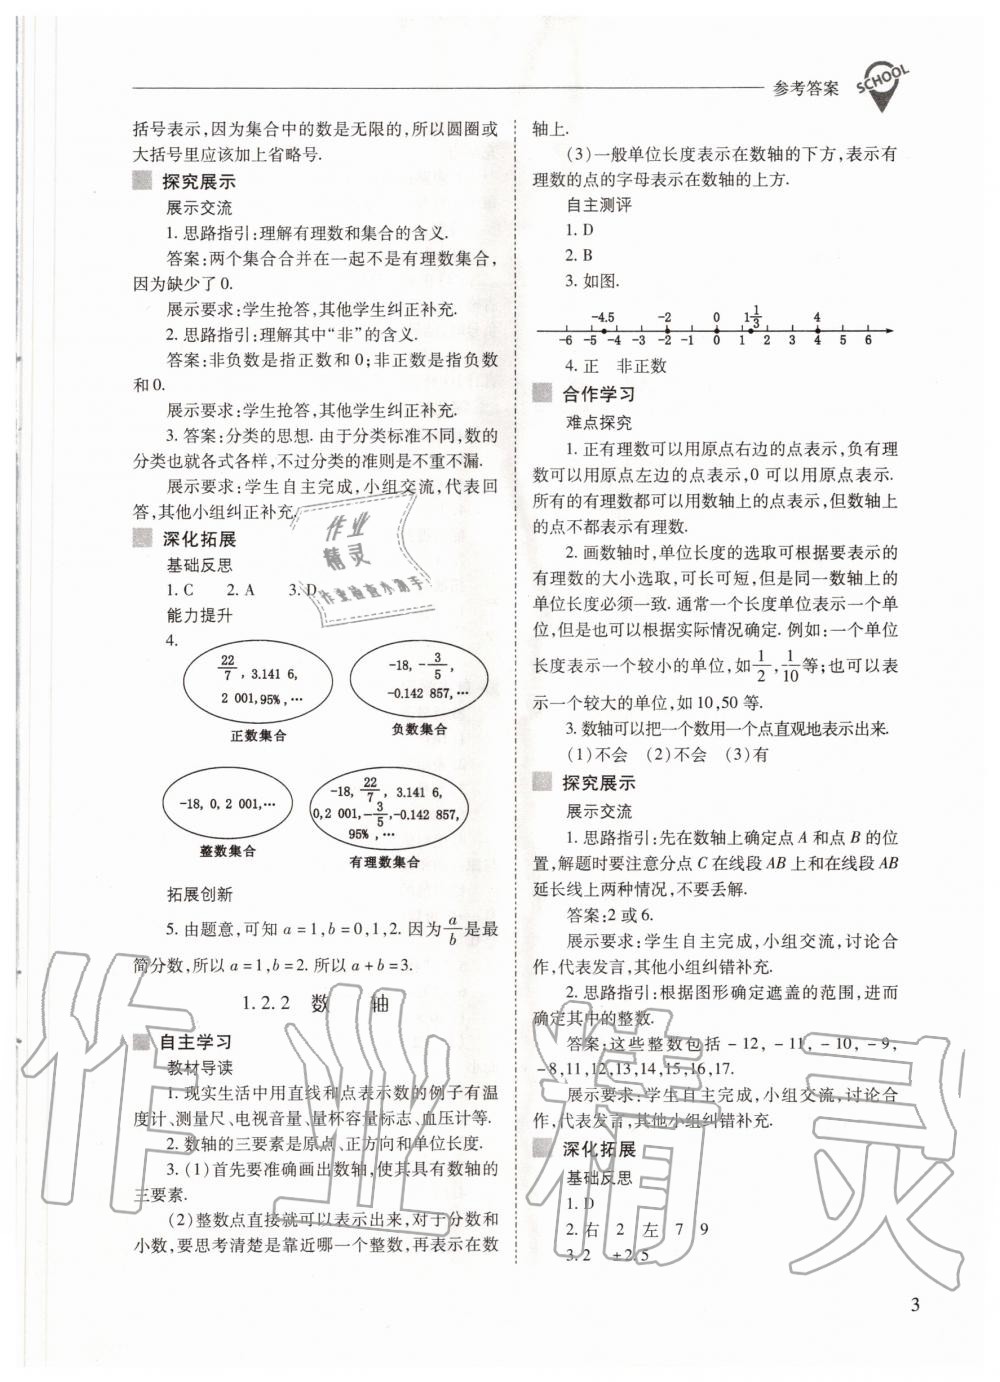 参考答案
SCHOOL
括号表示,因为集合中的数是无限的,所以圆圈或
大括号里应该加上省略号.
探究展示
展示交流
1. 思路指引:理解有理数和集合的含义.
答案:两个集合合并在一起不是有理数集合,
因为缺少了0.
展示要求:学生抢答,其他学生纠正补充.
2. 思路指引:理解其中“非”的含义.
答案:非负数是指正数和0;非正数是指负数
和0.
展示要求:学生抢答,其他学生纠正补充.
3. 答案:分类的思想. 由于分类标准不同,数的
分类也就各式各样,不过分类的准则是不重不漏.
展示要求:学生自主完成,小组交流,代表回
答,其他小组纠正补充.
深化拓展
基础反思
1. C 2. A 3. D
能力提升
4.
22/7, 3.141 6,
2 001,95%,…
正数集合
-18, -3/5,
-0.142 857,…
负数集合
-18, 0, 2 001,…
整数集合
-18, 22/7, 3.141 6,
0,2 001,-3/5,-0.142 857,
95%,…
有理数集合
拓展创新
5. 由题意,可知 a=1,b=0,1,2. 因为a/b是最
简分数,所以 a=1,b=2. 所以 a+b=3.
1.2.2 数 轴
自主学习
教材导读
1. 现实生活中用直线和点表示数的例子有温
度计、测量尺、电视音量、量杯容量标志、血压计等.
2. 数轴的三要素是原点、正方向和单位长度.
3. (1)首先要准确画出数轴,使其具有数轴的
三要素.
(2)整数点直接就可以表示出来,对于分数和
小数,要思考清楚是靠近哪一个整数,再表示在数
轴上.
(3)一般单位长度表示在数轴的下方,表示有
理数的点的字母表示在数轴的上方.
自主测评
1. D
2. B
3. 如图.
-4.5 -2 0 1 1/3 4
-6 -5 -4 -3 -2 -1 0 1 2 3 4 5 6
4. 正 非正数
合作学习
难点探究
1. 正有理数可以用原点右边的点表示,负有理
数可以用原点左边的点表示,0 可以用原点表示.
所有的有理数都可以用数轴上的点表示,但数轴上
的点不都表示有理数.
2. 画数轴时,单位长度的选取可根据要表示的
有理数的大小选取,可长可短,但是同一数轴上的
单位长度必须一致. 通常一个长度单位表示一个单
位,但是也可以根据实际情况确定. 例如:一个单位
长度表示一个较小的单位,如1/2,1/10等;也可以表
示一个较大的单位,如 10,50 等.
3. 数轴可以把一个数用一个点直观地表示出来.
(1)不会 (2)不会 (3)有
探究展示
展示交流
1. 思路指引:先在数轴上确定点 A 和点 B 的位
置,解题时要注意分点 C 在线段 AB 上和在线段 AB
延长线上两种情况,不要丢解.
答案:2 或 6.
展示要求:学生自主完成,小组交流,讨论合
作,代表发言,其他小组纠错补充.
2. 思路指引:根据图形确定遮盖的范围,进而
确定其中的整数.
答案:这些整数包括 -12, -11, -10, -9,
-8,11,12,13,14,15,16,17.
展示要求:学生自主完成,小组交流,讨论合
作,代表发言,其他小组纠错补充.
深化拓展
基础反思
1. D
2. 右 2 左 7 9
3. 2 +2.5
3
作业
精灵
作业检查小助手
作业精灵